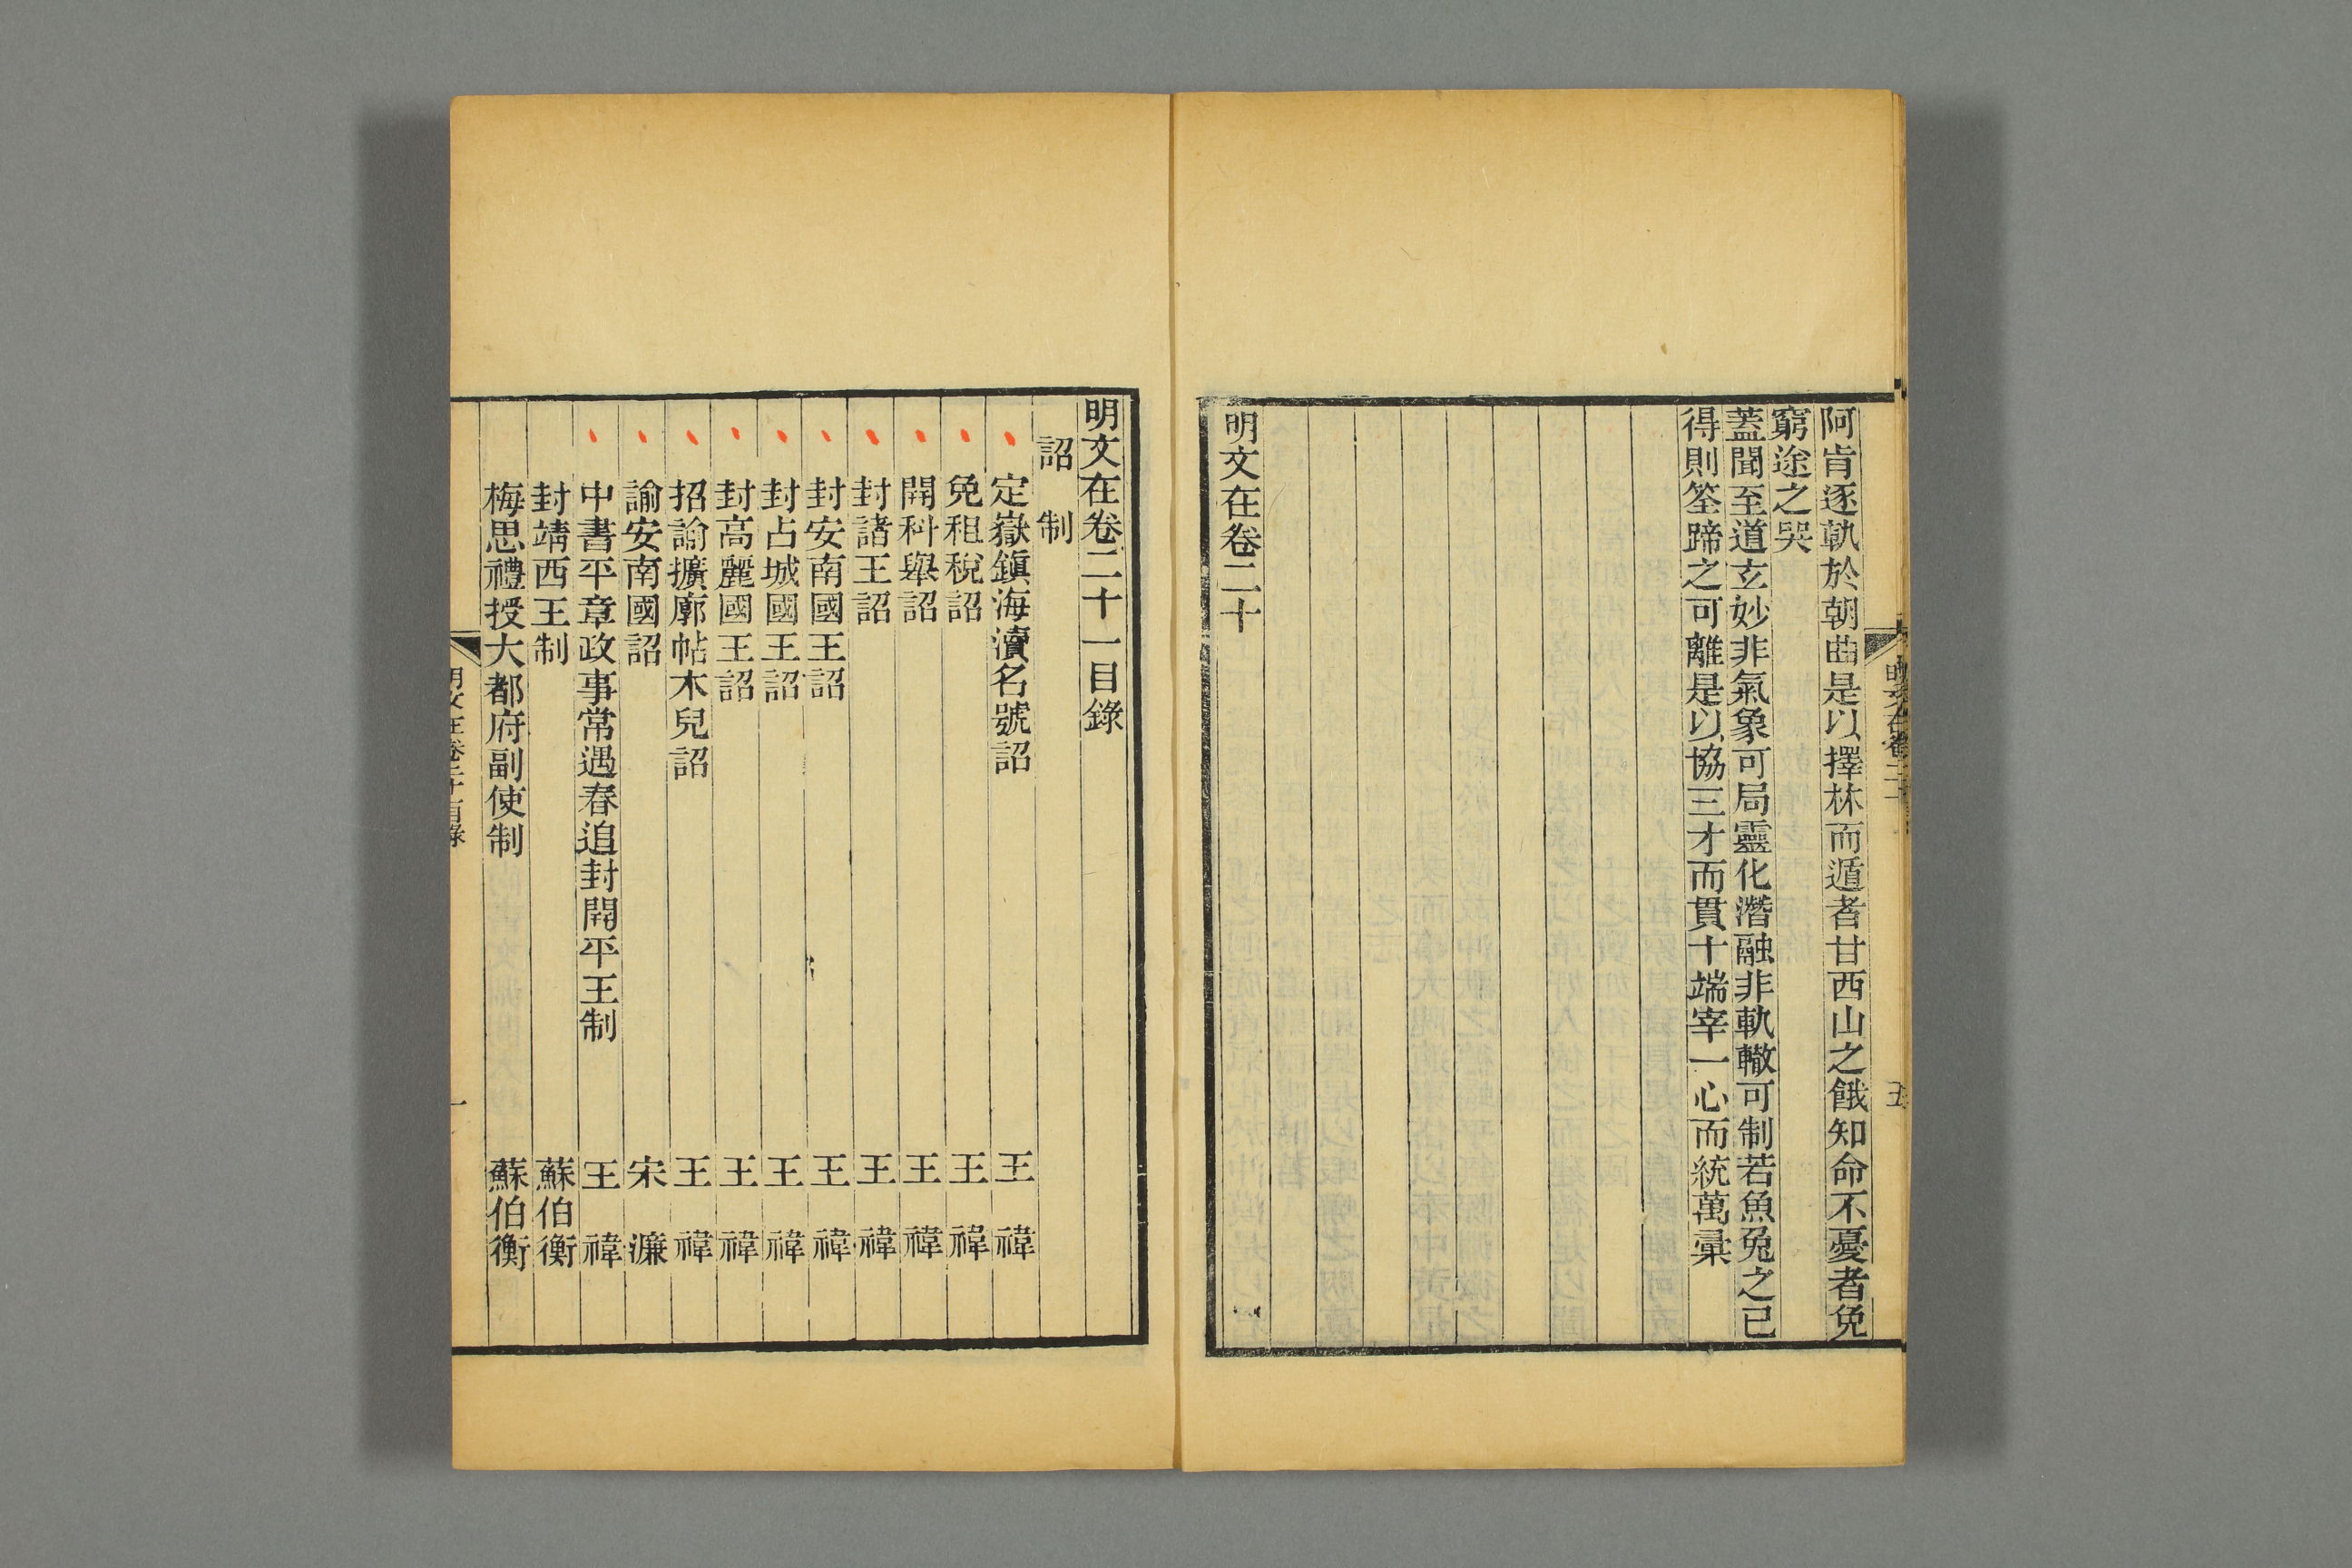 阿肯逐軌於朝曲是以擇林而遁者甘西山之餓知命不憂者免
窮途之哭
蓋聞至道玄妙非氣象可局靈化潛融非軌轍可制若魚兔之已
得則筌蹄之可離是以協三才而貫十端宰一心而統萬彙
明文在卷二十
明文在卷二十一目錄
詔 制
定嶽鎭海瀆名號詔 王禕
免租稅詔 王禕
開科舉詔 王禕
封諸王詔 王禕
封安南國王詔 王禕
封占城國王詔 王禕
封高麗國王詔 王禕
招諭擴廓帖木兒詔 王禕
諭安南國詔 宋濂
中書平章政事常遇春追封開平王制 王禕
封靖西王制 蘇伯衡
梅思禮授大都府副使制 蘇伯衡
一